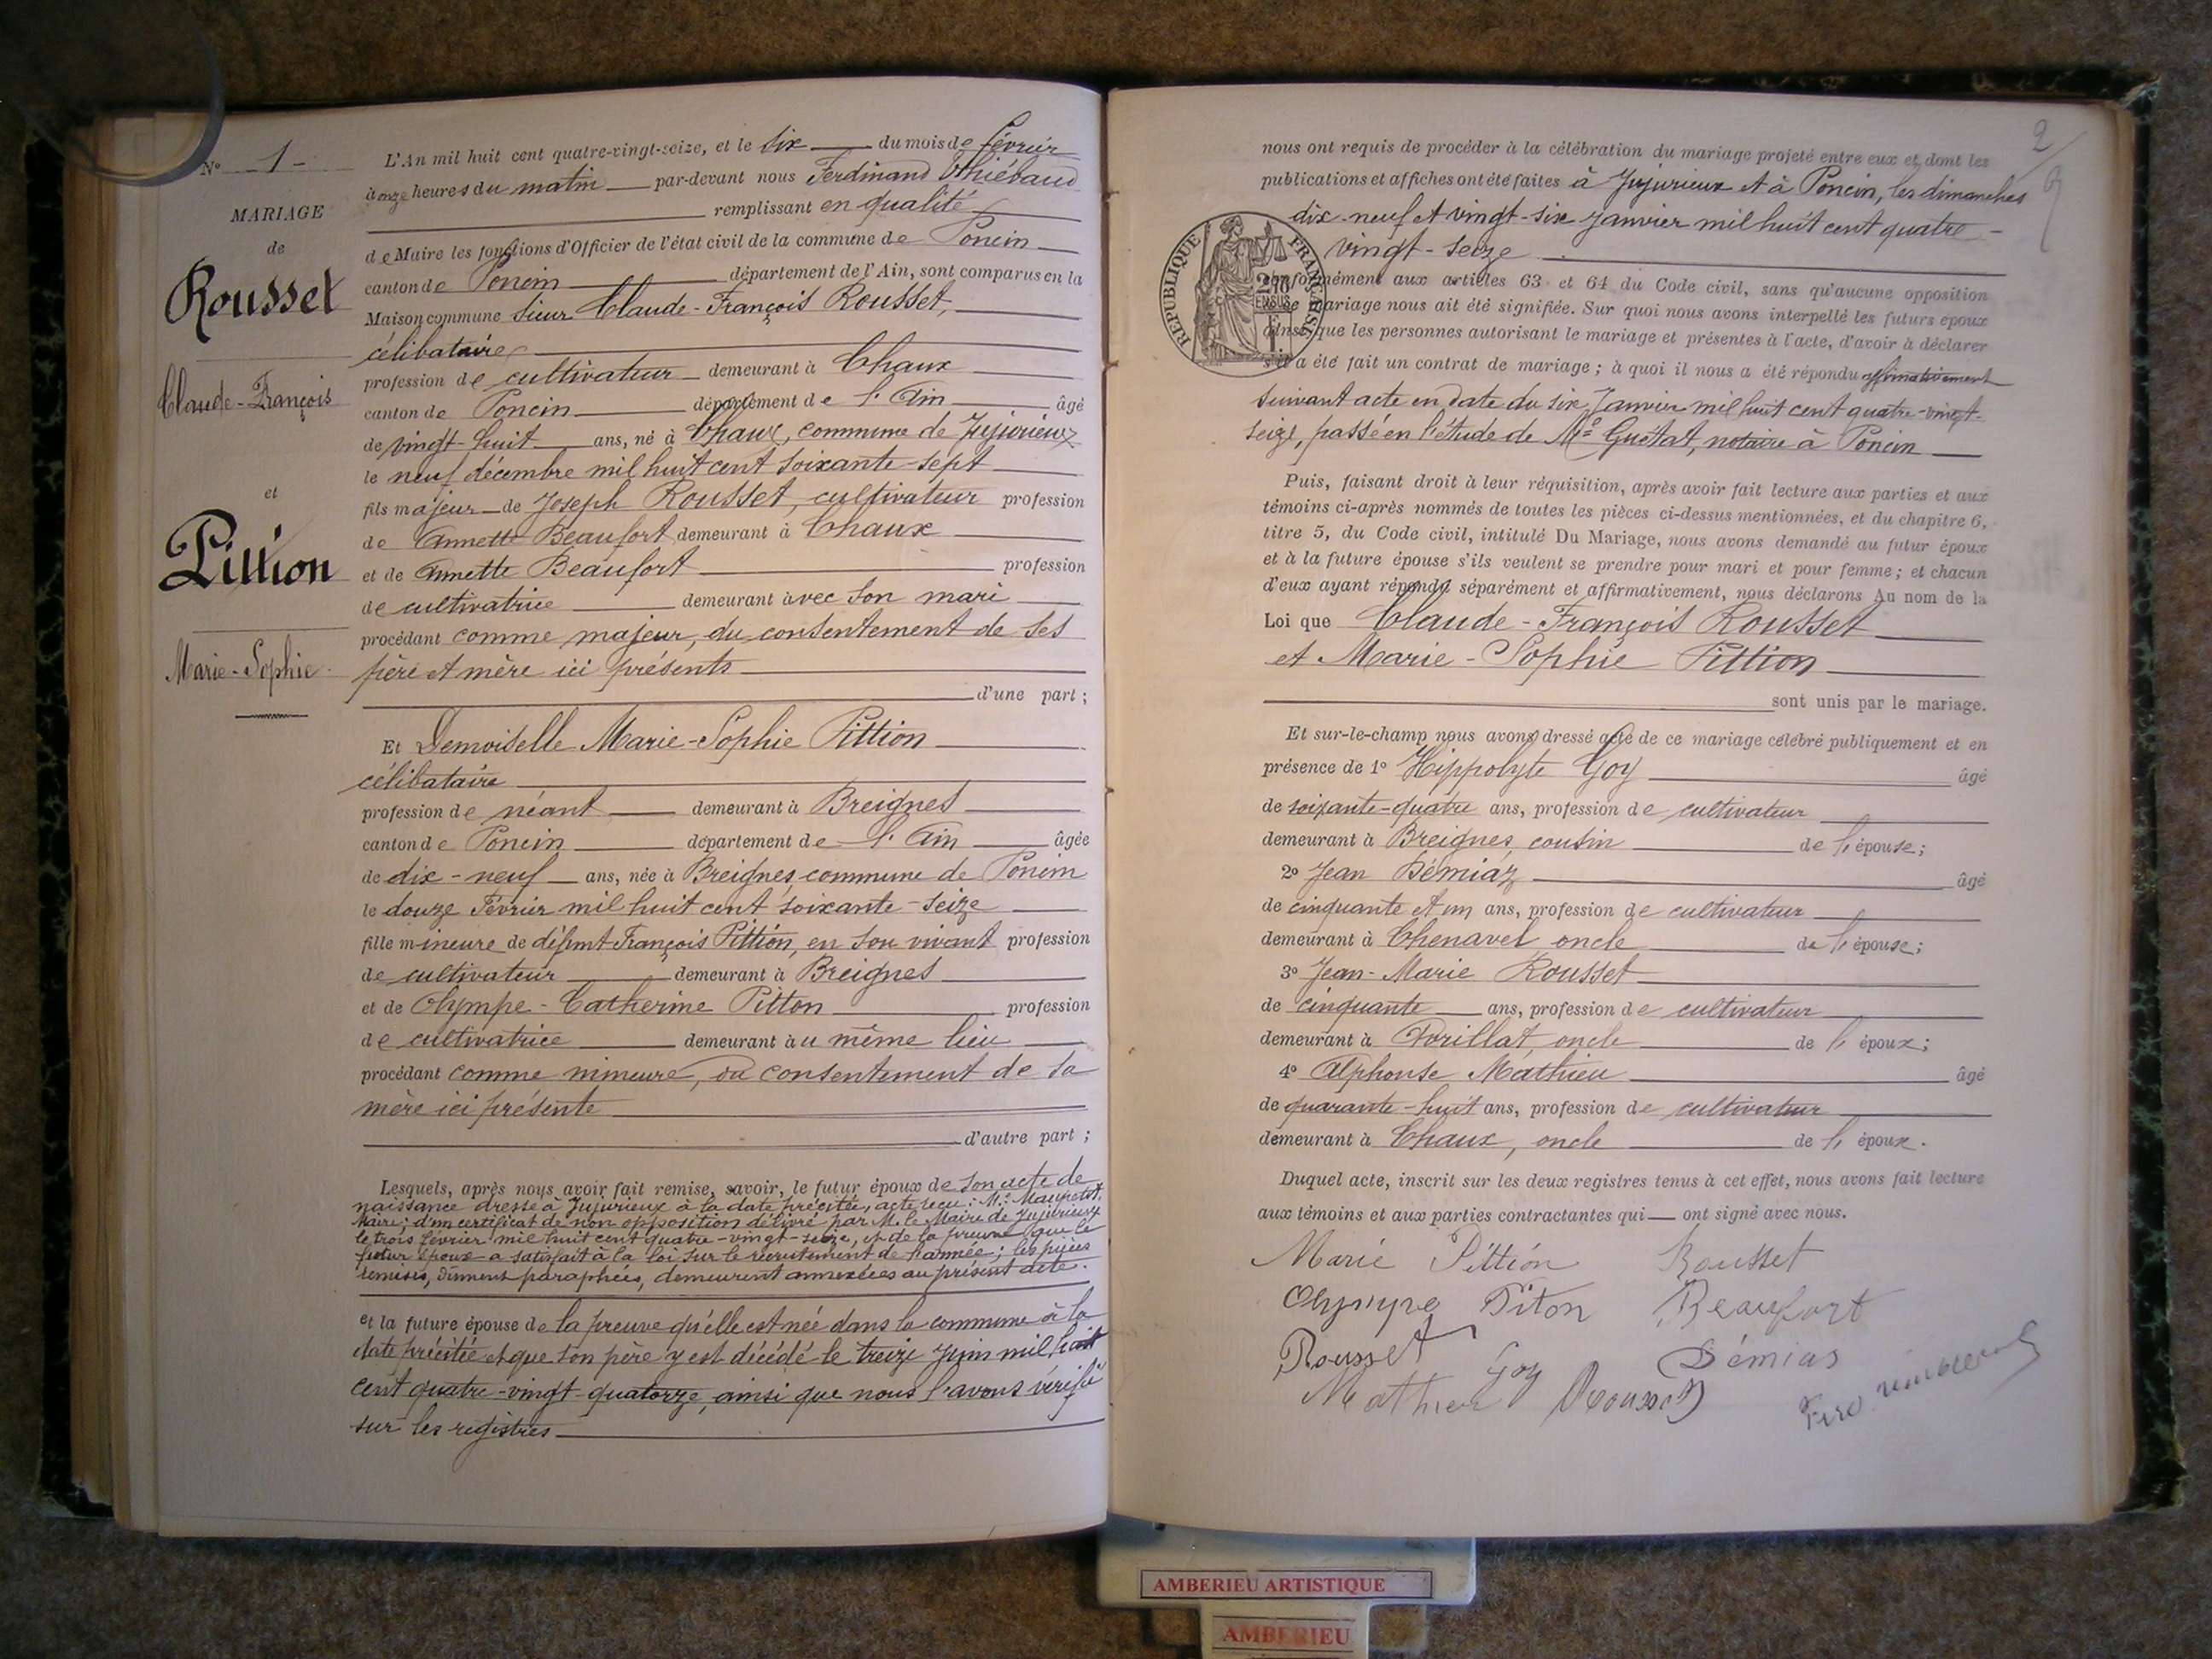 N° 1 -
MARIAGE
de
Rousset
Claude-François
et
Pittion
Marie-Sophie
L'An mil huit cent quatre-vingt-seize, et le six du mois de février
à onze heures du matin par-devant nous Ferdinand Thiébaud
remplissant en qualité
de Maire les fonctions d'Officier de l'état civil de la commune de Poncin
canton de Poncin département de l'Ain, sont comparus en la
Maison commune sieur Claude-François Rousset,
célibataire
profession de cultivateur demeurant à Chaux
canton de Poncin département de l'Ain âgé
de vingt-huit ans, né à Chaux, commune de Jujurieux
le neuf décembre mil huit cent soixante-sept
fils majeur de Joseph Rousset, cultivateur profession
de Annette Beaufort demeurant à Chaux
et de Annette Beaufort profession
de cultivatrice demeurant avec son mari
procédant comme majeur, du consentement de ses
père et mère ici présents
d'une part ;
Et Demoiselle Marie-Sophie Pittion
célibataire
profession de néant demeurant à Breignes
canton de Poncin département de l'Ain âgée
de dix-neuf ans, née à Breignes, commune de Poncin
le douze Février mil huit cent soixante-seize
fille mineure de défunt François Pittion, en son vivant profession
de cultivateur demeurant à Breignes
et de Olympe-Catherine Pitton profession
de cultivatrice demeurant au même lieu
procédant comme mineure, du consentement de sa
mère ici présente
d'autre part ;
Lesquels, après nous avoir fait remise, savoir, le futur époux de son acte de
naissance dressé à Jujurieux à la date précitée, acte reçu : Mr
Maire ; d'un certificat de non opposition délivré par M. le Maire de Jujurieux
le trois février mil huit cent quatre-vingt-seize, et de la preuve que le
futur époux a satisfait à la loi sur le recrutement de l'armée ; les pièces
remises, dûment paraphées, demeurent annexées au présent acte.
et la future épouse de la preuve qu'elle est née dans la commune à la
date précitée et que son père y est décédé le treize Juin mil huit
cent quatre-vingt-quatorze, ainsi que nous l'avons vérifié
sur les registres
2
nous ont requis de procéder à la célébration du mariage projeté entre eux et dont les
publications et affiches ont été faites à Jujurieux et à Poncin, les dimanches
dix-neuf et vingt-six Janvier mil huit cent quatre-
vingt-seize
RÉPUBLIQUE FRANÇAISE
conformément aux articles 63 et 64 du Code civil, sans qu'aucune opposition
mariage nous ait été signifiée. Sur quoi nous avons interpellé les futurs époux
ainsi que les personnes autorisant le mariage et présentes à l'acte, d'avoir à déclarer
s'il a été fait un contrat de mariage ; à quoi il nous a été répondu affirmativement
suivant acte en date du six Janvier mil huit cent quatre-vingt-
seize, passé en l'étude de Me Guétat, notaire à Poncin
Puis, faisant droit à leur réquisition, après avoir fait lecture aux parties et aux
témoins ci-après nommés de toutes les pièces ci-dessus mentionnées, et du chapitre 6,
titre 5, du Code civil, intitulé Du Mariage, nous avons demandé au futur époux
et à la future épouse s'ils veulent se prendre pour mari et pour femme ; et chacun
d'eux ayant répondu séparément et affirmativement, nous déclarons Au nom de la
Loi que Claude-François Rousset
et Marie-Sophie Pittion
sont unis par le mariage.
Et sur-le-champ nous avons dressé acte de ce mariage célébré publiquement et en
présence de 1° Hippolyte Goy âgé
de soixante-quatre ans, profession de cultivateur
demeurant à Breignes, cousin de l'épouse ;
2° Jean Démiaz âgé
de cinquante et un ans, profession de cultivateur
demeurant à Chenavel oncle de l'épouse ;
3° Jean-Marie Rousset
de cinquante ans, profession de cultivateur
demeurant à oncle de l'époux ;
4° Alphonse Mathieu âgé
de quarante-huit ans, profession de cultivateur
demeurant à Chaux, oncle de l'époux.
Duquel acte, inscrit sur les deux registres tenus à cet effet, nous avons fait lecture
aux témoins et aux parties contractantes qui ont signé avec nous.
Marie Pittion Rousset
Olympe Piton Beaufort
Rousset Goy Démias
Mathieu Rousset
AMBERIEU ARTISTIQUE
AMBERIEU